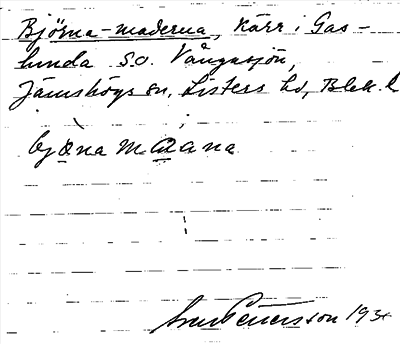 Björna-maderna, Kärr i Gas-
lunda S.O. Vångasjön,
Jämshögs sn, Listers hd, Blek. l
bjɷ̀na mɑana
Sven Petersson 193